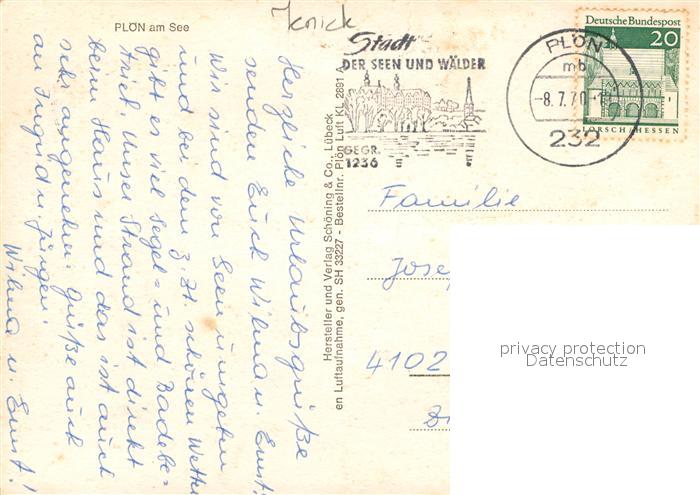 PLÖN am See
Stadt
DER SEEN UND WÄLDER
GEGR.
1236
PLÖN
mb
-8.7.70
232
Deutsche Bundespost
20
LORSCH/HESSEN
Herzliche Urlaubsgrüße
senden Euch Wilma u. Ernst.
Wir sind von Seen umgeben
und bei dem z. Zt. schönen Wetter
gibt es viel Segel- und Badebe-
trieb. Unser Strand ist direkt
beim Haus und das ist auch
sehr angenehm. Grüße auch
an Ingrid u. Jürgen!
Wilma u. Ernst!
Hersteller und Verlag Schöning & Co., Lübeck
en Luftaufnahme, gen. SH 33227 - Bestellnr. Plön Luft KL 2891
Familie
Jose
4102
privacy protection
Datenschutz